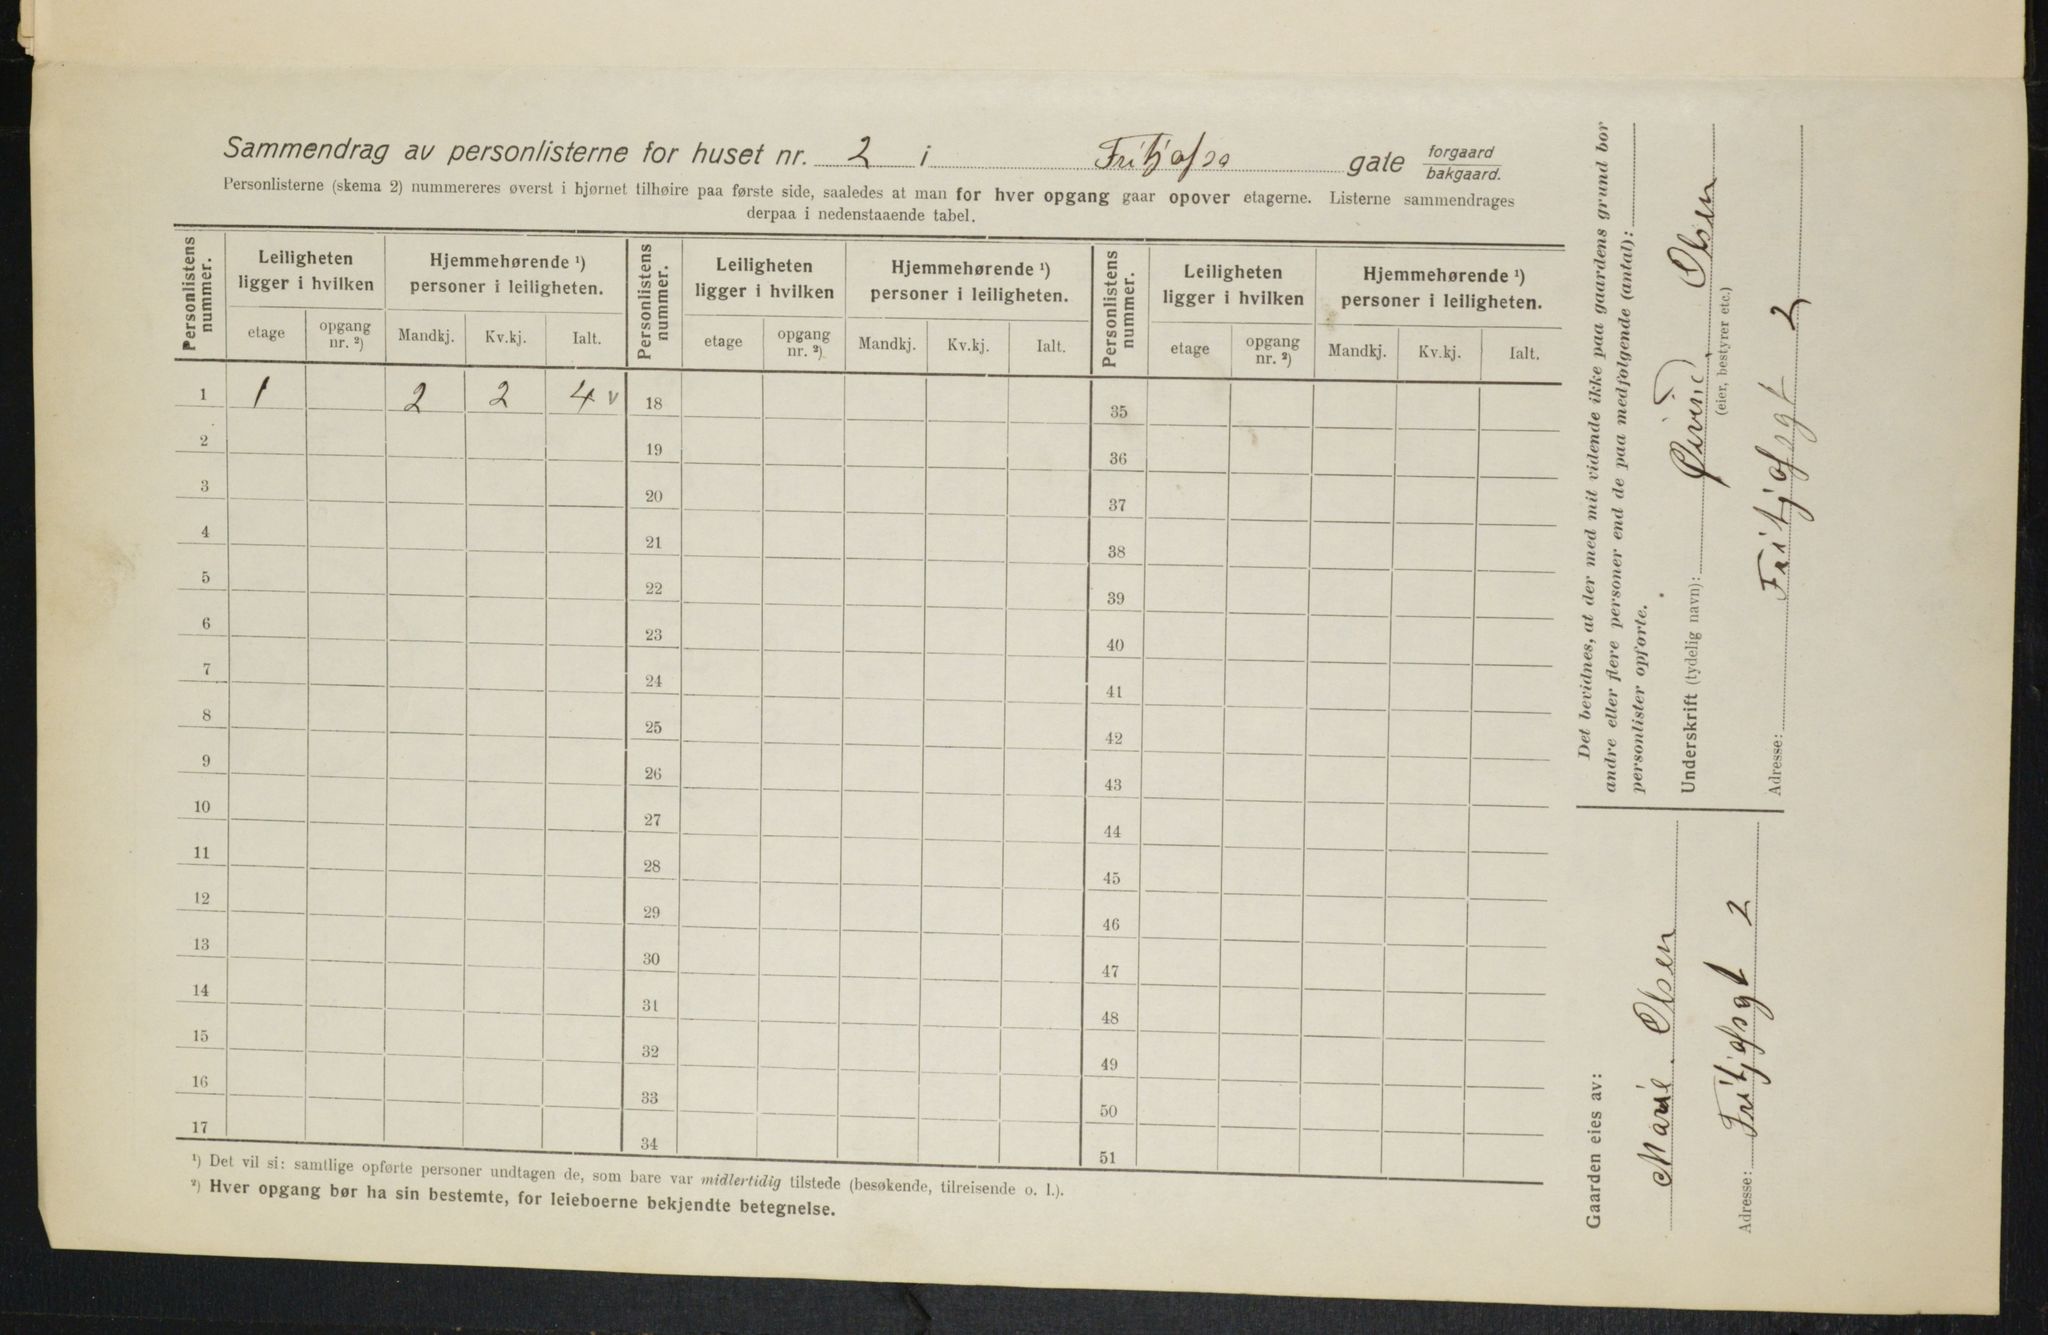 Sammendrag av personlisterne for huset nr. 2 i Fritjofs gate forgaard bakgaard.
Personlisterne (skema 2) nummereres øverst i hjørnet tilhøire paa første side, saaledes at man for hver opgang gaar opover etagerne. Listerne sammendrages
derpaa i nedenstaaende tabel.
Personlistens nummer. Leiligheten ligger i hvilken Hjemmehørende ¹) personer i leiligheten. Personlistens nummer. Leiligheten ligger i hvilken Hjemmehørende ¹) personer i leiligheten. Personlistens nummer. Leiligheten ligger i hvilken Hjemmehørende ¹) personer i leiligheten.
etage opgang nr. ²) Mandkj. Kv.kj. Ialt. etage opgang nr. ²) Mandkj. Kv.kj. Ialt. etage opgang nr. ²) Mandkj. Kv.kj. Ialt.
1 1 2 2 4 v 18 35
2 19 36
3 20 37
4 21 38
5 22 39
6 23 40
7 24 41
8 25 42
9 26 43
10 27 44
11 28 45
12 29 46
13 30 47
14 31 48
15 32 49
16 33 50
17 34 51
¹) Det vil si: samtlige opførte personer undtagen de, som bare var midlertidig tilstede (besøkende, tilreisende o. l.).
²) Hver opgang bør ha sin bestemte, for leieboerne bekjendte betegnelse.
Det bevidnes, at der med mit vidende ikke paa gaardens grund bor
andre eller flere personer end de paa medfølgende (antal):
personlister opførte.
Underskrift (tydelig navn): Øivind Olsen
(eier, bestyrer etc.)
Adresse: Fritjofsgt 2
Gaarden eies av:
Marie Olsen
Adresse: Fritjofsgt 2